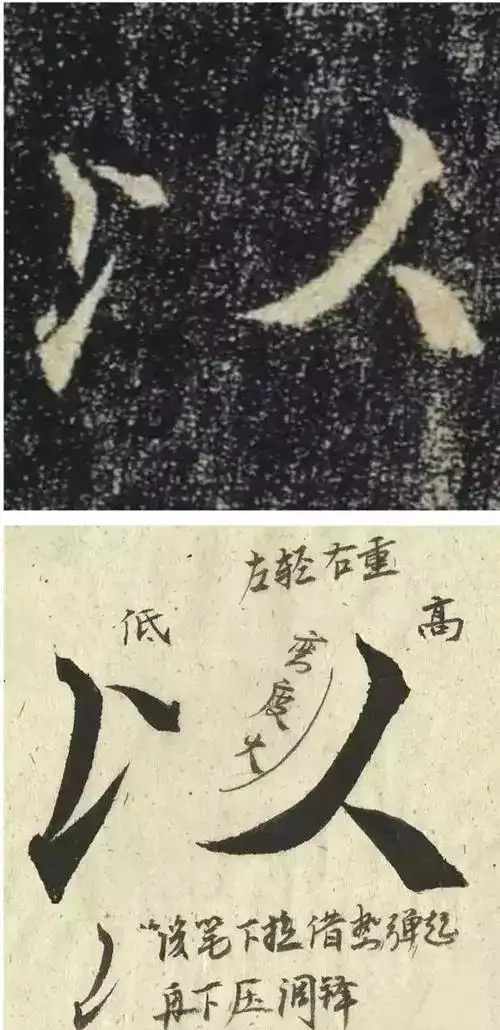 以
左轻右重
低
高
弯度大
以
顿笔下拉借势弹起
再下压调锋